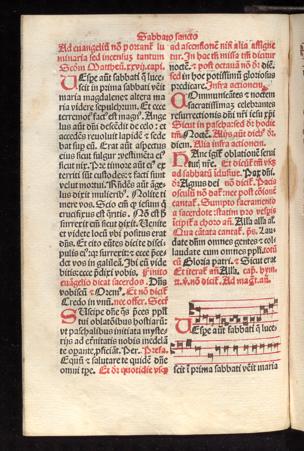 Sabbato sancto
Ad euangeliũ nõ portant̃ lu
minaria sed incensuz tantum
Scḋm Mattheũ. xxviij. capi.
Uespe aũt sabbati q̃ luce
scit in prima sabbati venit
maria magdalene et altera ma
ria videre sepulchrum. Et ecce
terremot᷒ fact᷒ est magn᷒. Ange
lus aũt dñi descẽdit de celo: et
accedẽs reuoluit lapidẽ et sede
bat sup eũ. Erat aũt aspectus
eius sicut fulgur et
sicut nix. Pre timore aũt ei᷒ ex
territi sũt custodes: et facti sunt
velut mortui. Rñdẽs aũt ãge
lus dixit mulierib᷒. Nolite ti
mere vos. Scio eñ q iesum q
crucifixus est q̃ritis. Nõ est hic
surrexit eñ sicut dixit. Venite
et videte locũ vbi positus erat
dñs. Et cito eũtes dicite disci
pulis ei᷒ qz surrexit: et ecce pce
det vos in galileã. Ibi eũ vide
bitis: ecce pdixi vobis. Finito
euãgelio dicat sacerdos. Dñs
vobiscũ et Orem᷒. Et nõ dicit᷒
Credo in vnũ. nec offer. Secr̃
Suscipe dñe q̃s pces ppli
tui cũ oblatiõibus hostiarũ:
vt paschalibus initiata myste
rijs ad eternitatis nobis medelã
te opante pficiãt. Per. Prefa.
Equũ et salutare te quidẽ dñe
omni tpe. Et õr quotidie vsqz
ad ascensionẽ nisi alia assigne
tur. In hac tñ missa tm̃ dicitur
noctẽ. et post octauã nõ õr diẽ.
sed in hoc potissimũ gloriosius
predicare. Infra actionem.
Communicãtes et noctem
sacratissimaz celebrantes
resurrectionis dñi nri iesu xpi
Sicut in pascha sed õr hodie
tm̃ Noctẽ. Alijs aũt dieb᷒ õr.
diem. Alia infra actionem.
Hanc igit᷒ oblationẽ serui
tutis nre. Et dicit᷒ vsqz
ad sabbatũ
Agnus dei nõ dicit᷒. Pax
osculũ nõ dat᷒ nec post cõione
cantat᷒. Sumpto sacramento
a sacerdote: statim pro vespis
icipit᷒ a choro añ. Alla alla al.
Qua cãtata cantat᷒ ps. Lau
date dñum omnes gentes et col
laudate eum omnes ppli. totũ
cũ Gloria patri. et Sicut erat
Et iterat᷒ añ Alla. cap. hym.
et v. nõ dicit᷒. Ad mag᷒t. añ.
Uespe aũt sabbati q̃ luce
scit ĩ prima sabbati vẽit maria